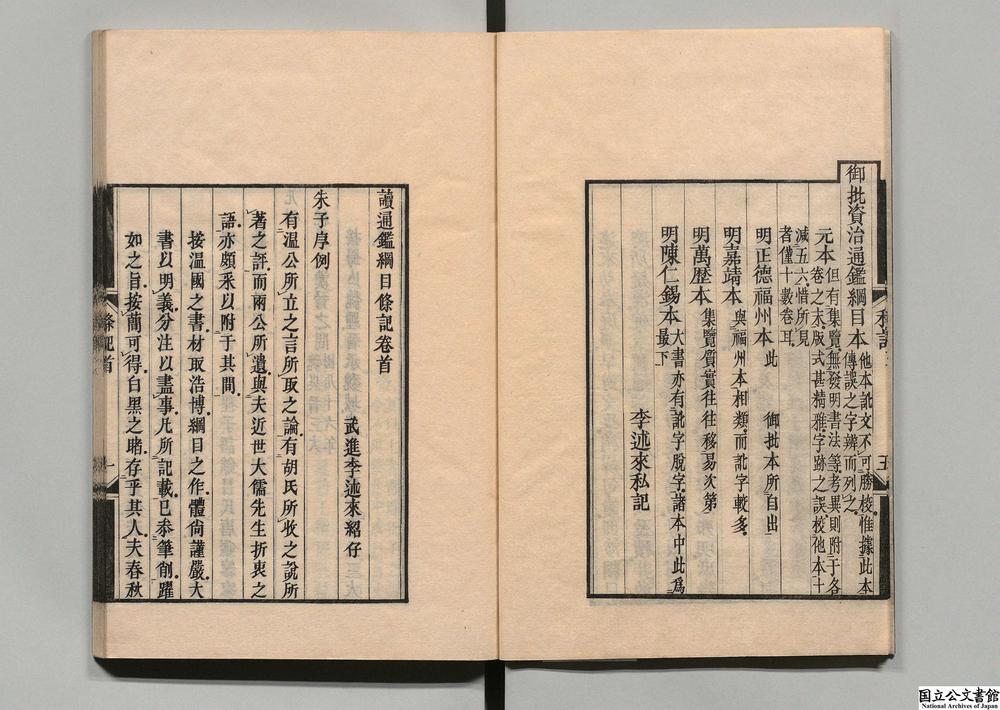 御批資治通鑑綱目本 他本訛文不可勝校惟據此本
傳誤之字辨而列之
元本 但有集覽無發明書法等考異則附于各
卷之末版式甚精雅字跡之誤校他本十
減五六惜所見
者僅十數卷耳
明正德福州本 此 御批本所自出
明嘉靖本 與福州本相類而訛字較多
明萬歷本 集覽質實往往移易次第
明陳仁錫本 大書亦有訛字脫字諸本中此爲
最下
李述來私記
讀通鑑綱目條記卷首
武進李述來紹仔
朱子序例
有溫公所立之言所取之論有胡氏所收之說所
著之評而兩公所遺與夫近世大儒先生折衷之
語亦頗釆以附于其間
按溫國之書材取浩博綱目之作體尚謹嚴大
書以明義分注以盡事凡所記載已叅筆削躍
如之旨按蕳可得白黑之睹存乎其人夫春秋
條記首
一
国立公文書館
National Archives of Japan